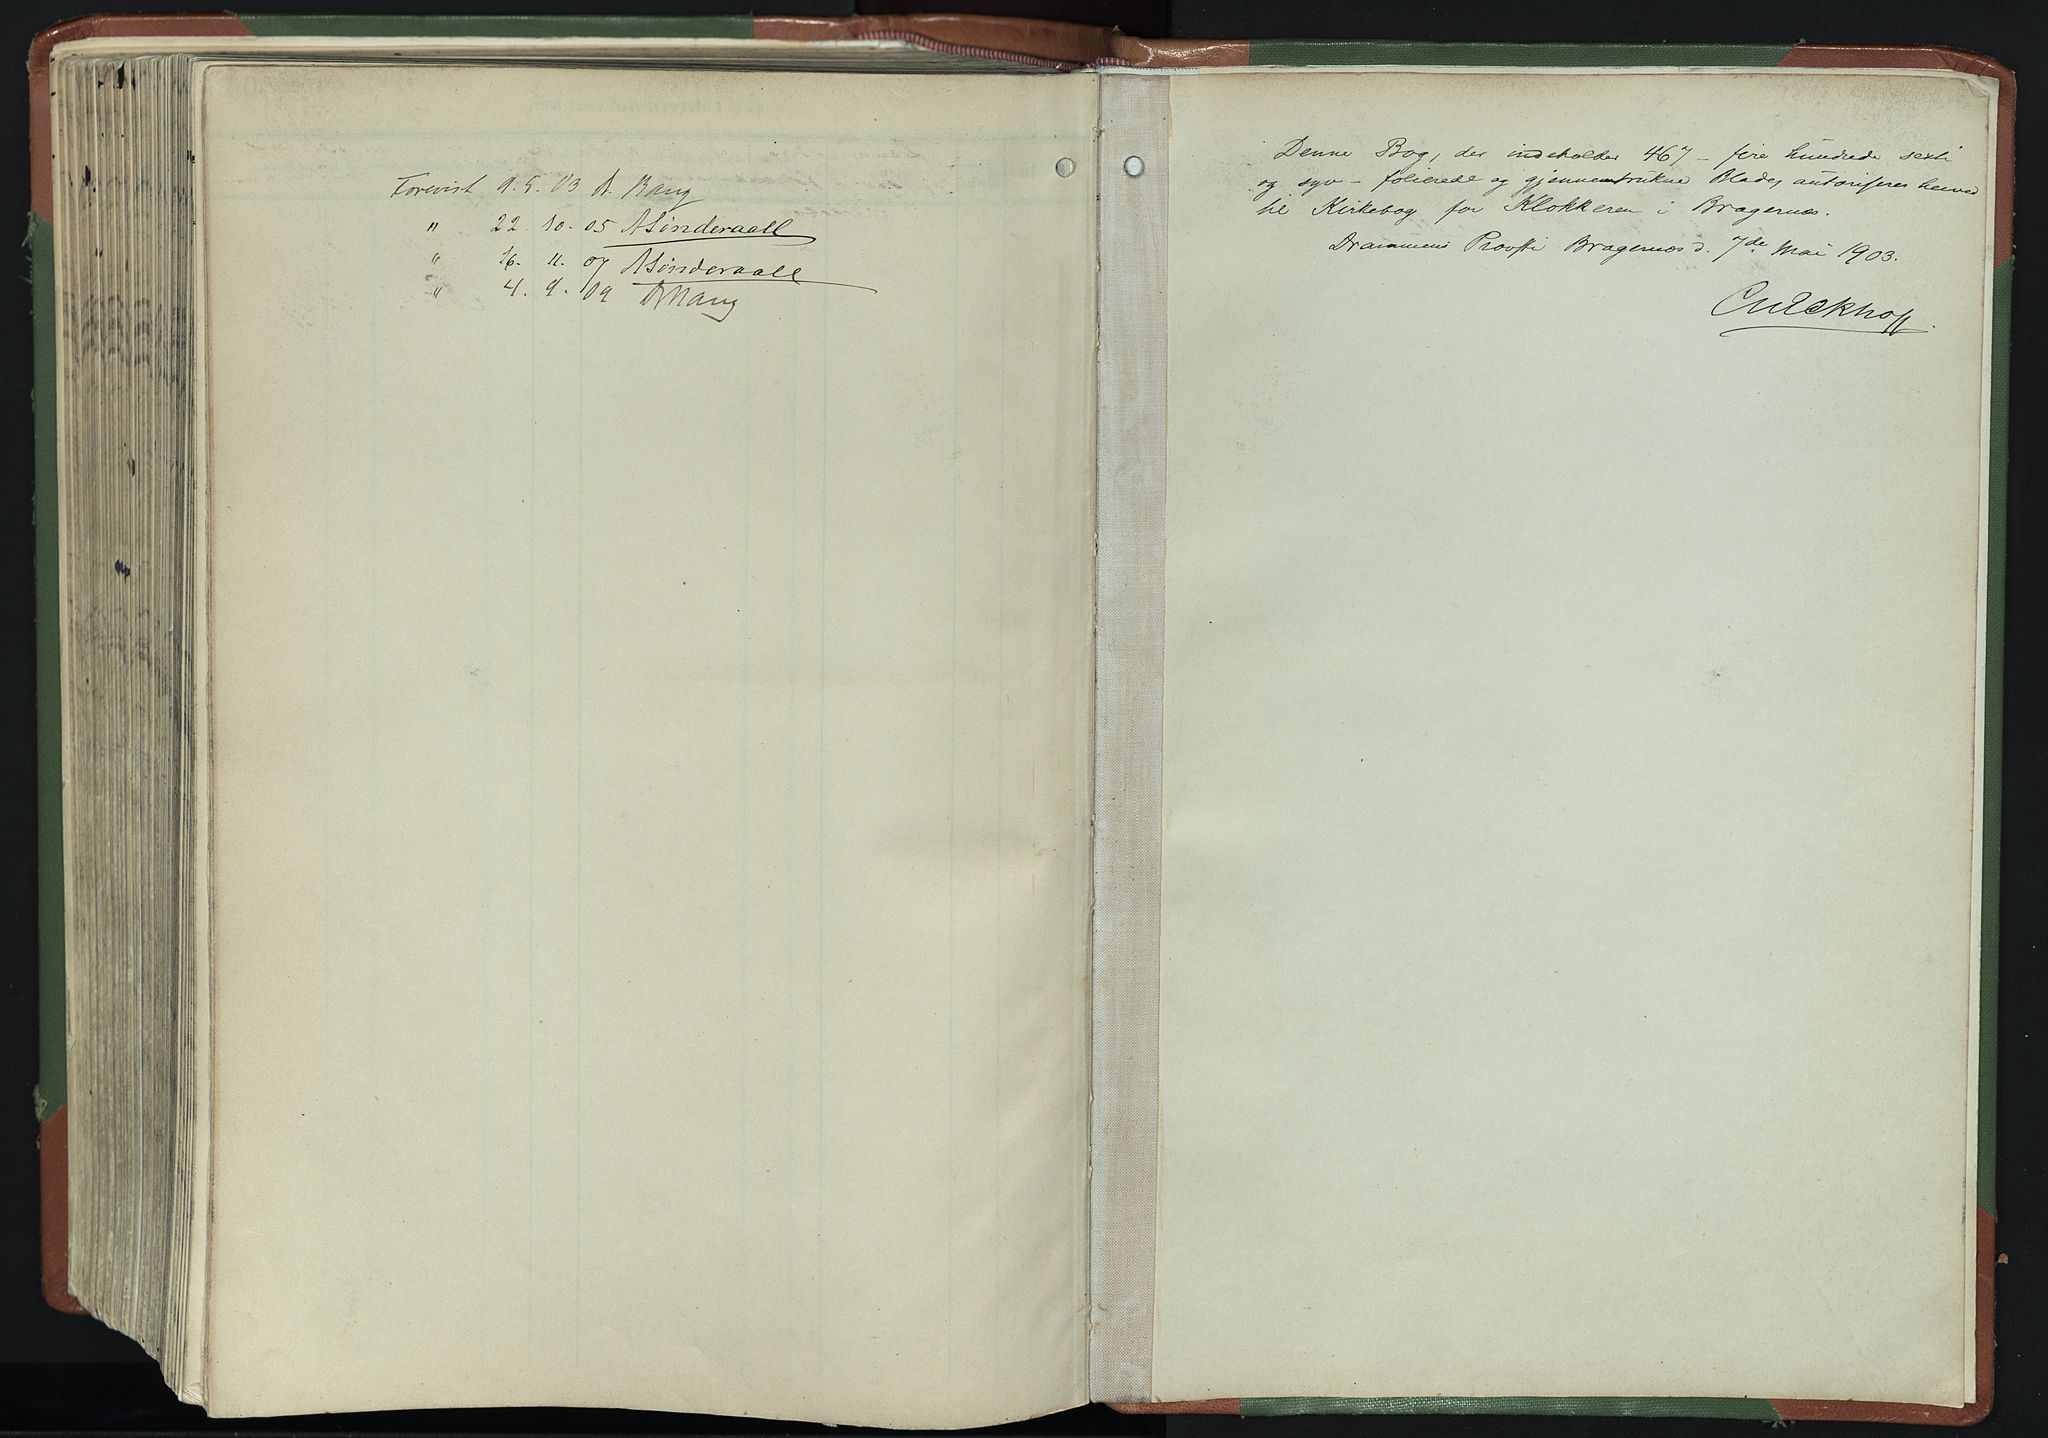 Forevist 9. 5. 03 A. Bang
" 22. 10. 05 ASønderaall
" 26. 11. 07 ASønderaall
" 4. 9. 09 A Bang
Denne Bog, der indeholder 467 - fire hundrede sexti
og syv - folierede og gjennemtrukne Blade, autoriseres herved
til Kirkebog for Klokkeren i Bragernes.
Drammens Provsti Bragernes d. 7de Mai 1903.
Eckhoff.